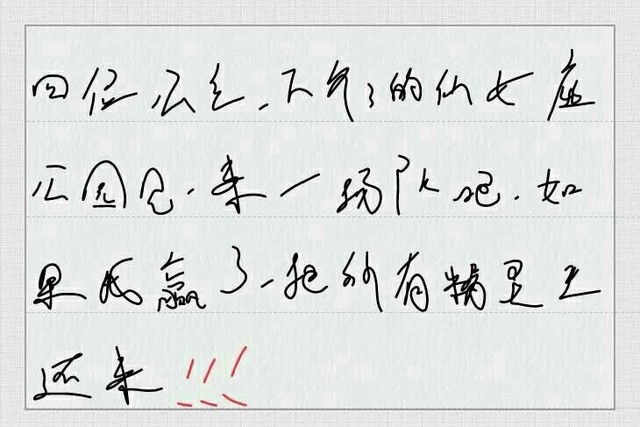 四位公主,下午3的仙女座
公园见.来一场PK吧.如
果我赢了,把所有精灵王
还来!!!